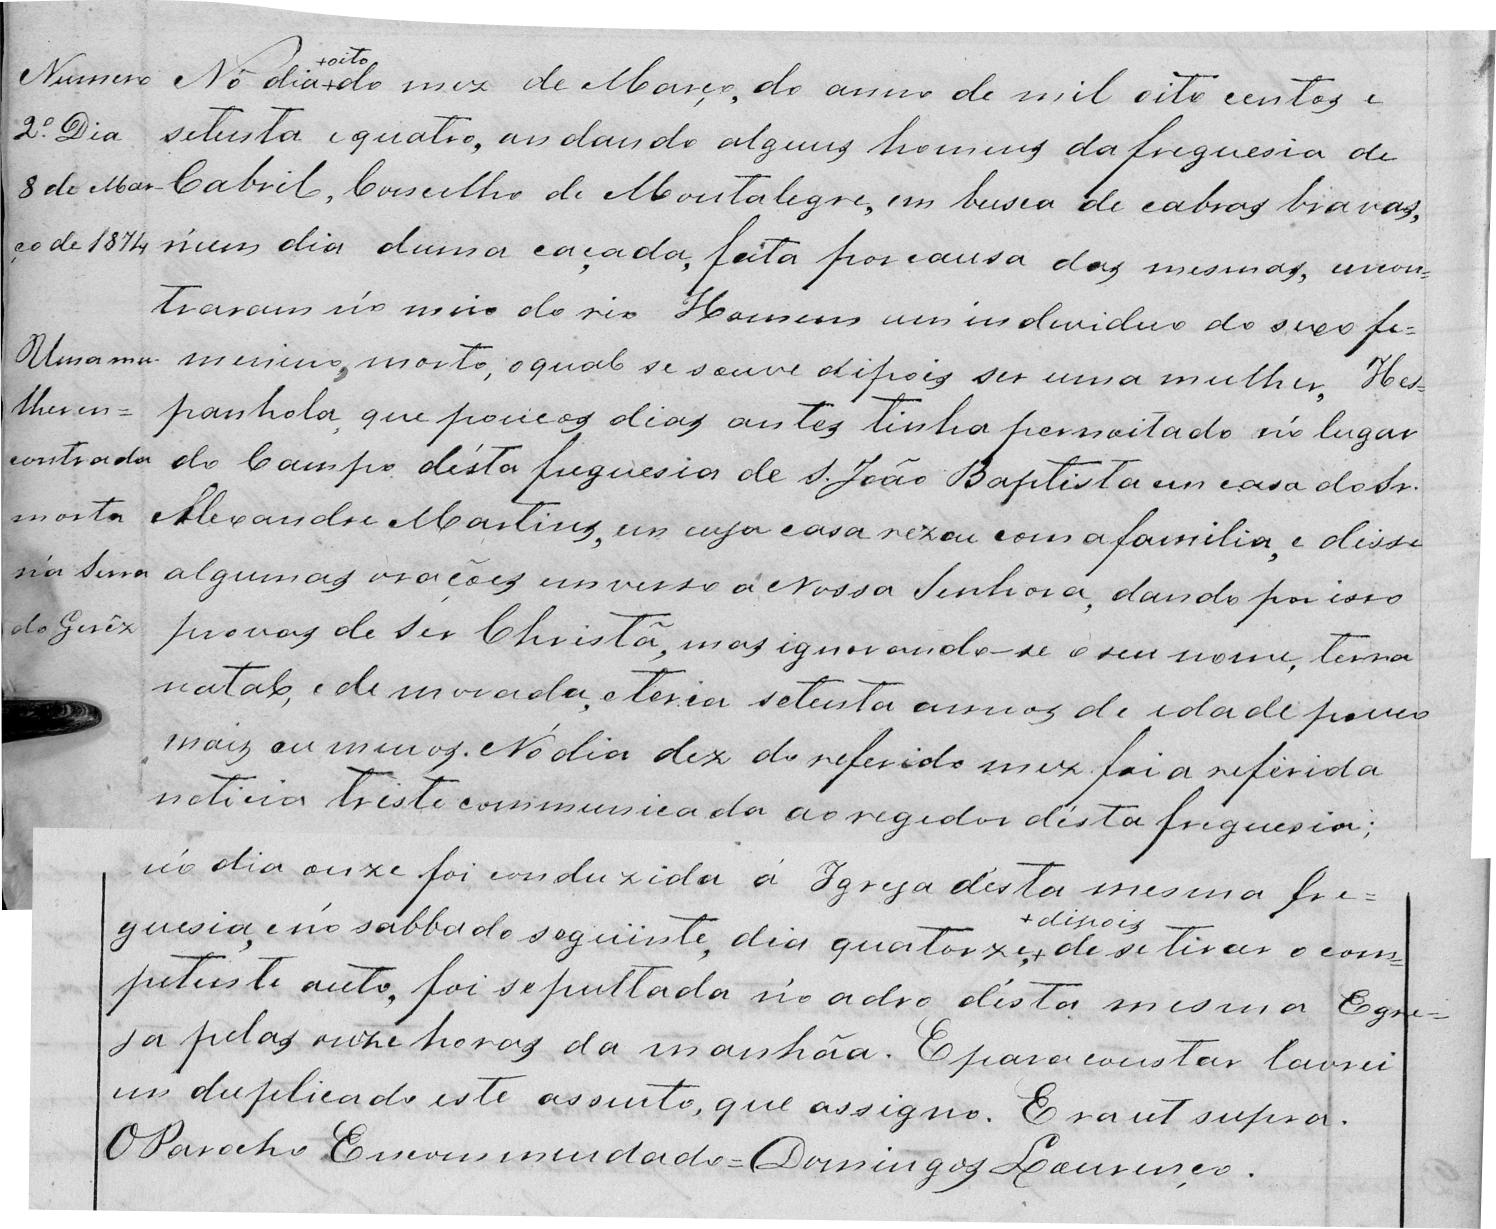 Numero
2º. Dia
8 de Mar-
ço de 1874
Uma mu-
lher en=
contrada
morta
na Serra
do Gerêz
Nó dia +oito do mez de Março, do anno de mil oito centos e
setenta e quatro, andando alguns homens da freguesia de
Cabril, Conselho de Montalegre, em busca de cabras bravas,
n'um dia duma caçada, feita por causa das mesmas, encon=
traram nó meio do rio Homem um individuo do sexo fe=
menino, morto, o qual se souve dipois ser uma mulher, Hes=
panhola, que poucos dias antes tinha pernoitado nó lugar
do Campo désta freguesia de S. João Baptista em casa do Sr.
Alexandre Martins, em cuja casa rezou com a familia, e disse
algumas orações em verso a Nossa Senhora, dando por isso
provas de ser Christã, mas ignorando-se o seu nome, terra
natal, e de morada, e teria setenta annos de idade pouco
mais ou menos. Nó dia dez do referido mez foi a referida
noticia triste communicada ao regedor désta freguesia;
nó dia onze foi conduzida á Igreja désta mesma fre=
guesia, e nó sabbado seguinte, dia quatorze, +dipois de se tirar o com=
petente auto, foi sepultada nó adro désta mesma Egre=
ja pelas onze horas da manhãa. E para constar lavrei
em duplicado este assento, que assigno. Era ut supra.
O Parocho Encommendado = Domingos Lourenço.